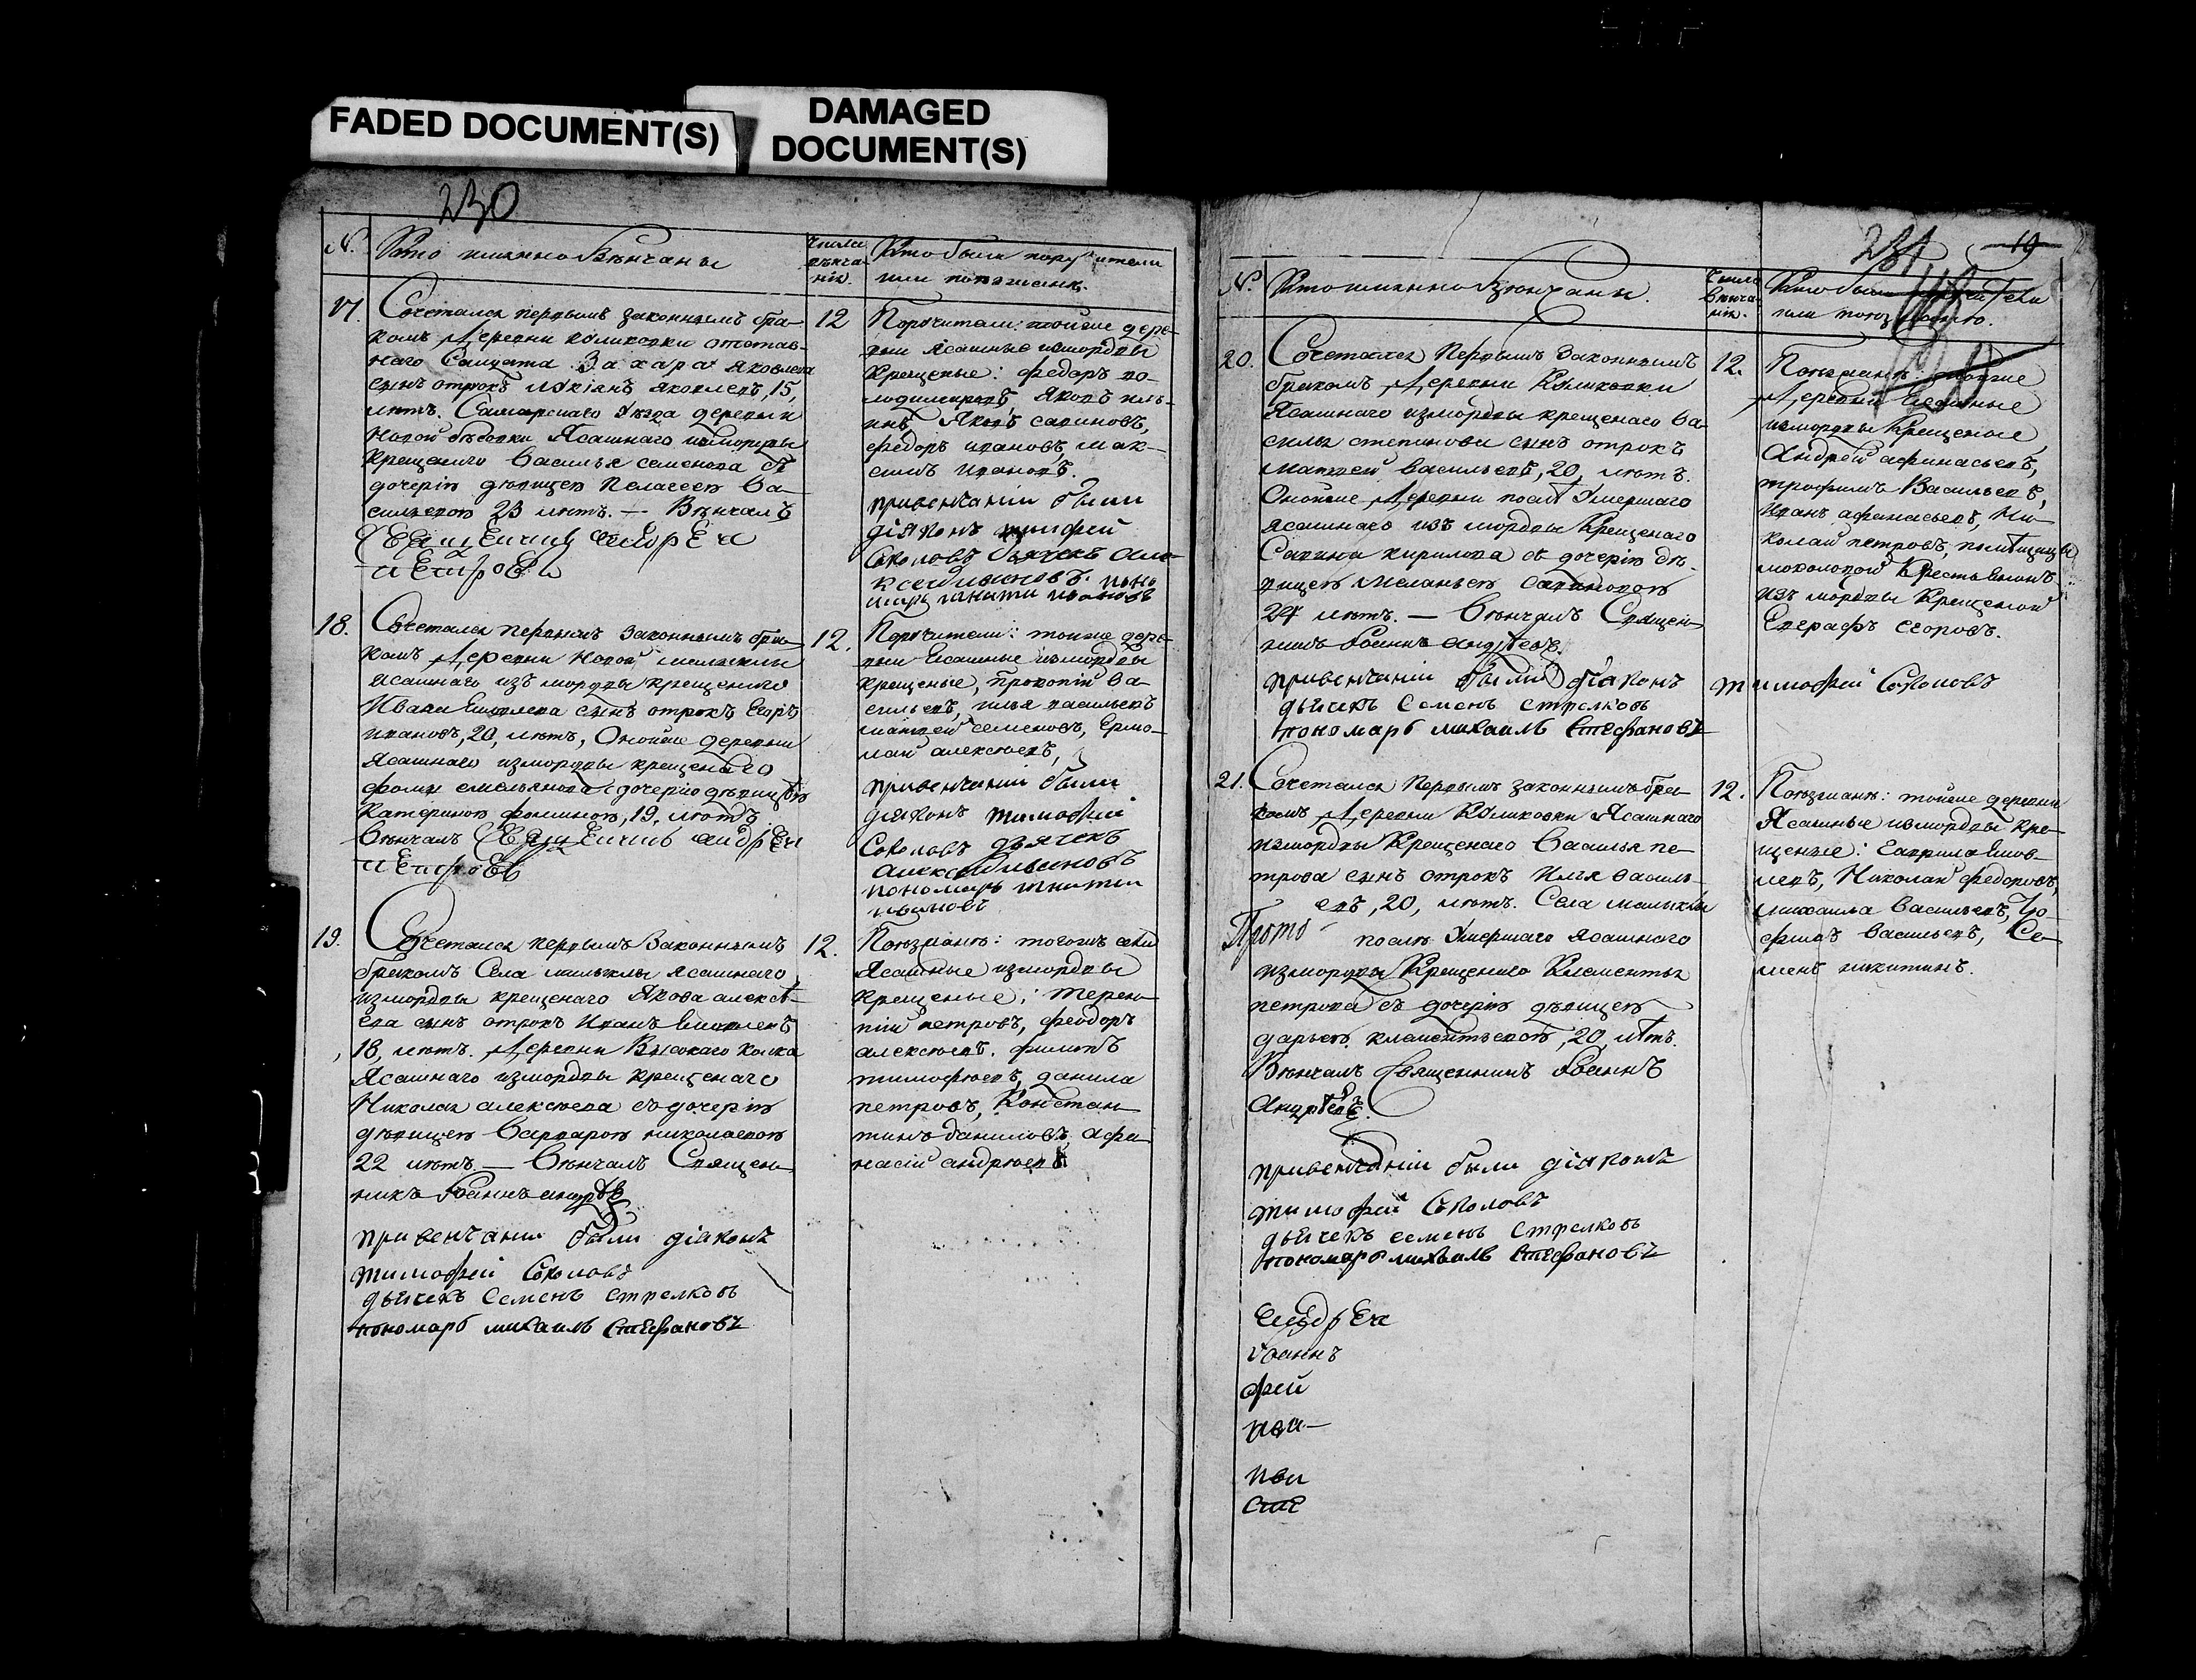 FADED DOCUMENT(S)
DAMAGED
DOCUMENT(S)
230
№
Кто имянно Венчаны
Число
венча-
нія.
Кто были поручители
или поезжане.
17.
Сочетался первымъ законнымъ бра-
комъ Деревни Куликовки отстав-
наго Салдата Захара Яковлева
сынъ отрокъ Яковлевъ, 15,
летъ. Самарскаго Уезда деревни
Новой Ясашнаго измордвы
крещенаго Василья семенова съ
дочерію девицею Пелагеею Ва-
сильевою 23 летъ. — Венчалъ
Священикъ Андреи
Петровъ
12
Поручители: тойже дере-
вни Ясашные измордвы
Крещеные: федоръ во-
лодимеровъ, Яковъ иль-
инъ, Яковъ савиновъ,
федоръ ивановъ, мак-
симъ ивановъ.
привенчаніи были
діяконъ тимофей
Соколовъ дьячекъ

18.
Сочетался первымъ законнымъ бра-
комъ Деревни новой малыклы
ясашнаго изъ мордвы крещенаго
Ивана сынъ отрокъ Егоръ
ивановъ, 20, летъ, Оной же деревни
Ясашнаго измордвы крещенаго
фомы емельянова с дочерью девицею
Катериною фоминою, 19, летъ
Венчалъ Священикъ Андреи
Петровъ
12.
Поручители: тойже дере-
вни Ясашные измордвы
крещеные, прокопій ва-
сильевъ, илья васильевъ
матвей семеновъ, Ермо-
лай алексеевъ,
привенчаніи были
діяконъ тимофей
Соколовъ дьячекъ
пономарь
ивановъ
19.
Сочетался первымъ Законнымъ
бракомъ Села малыклы ясашнаго
измордвы крещенаго Якова алексе-
ева сынъ отрокъ Иванъ Яковлевъ
18, летъ. Деревни Высокаго колка
Ясашнаго измордвы крещенаго
Николая алексеева съ дочерію
девицею Варварою николаевою
22 летъ. — Венчалъ Священ-
никъ Іоаннъ андреевъ
привенчании были діяконъ
тимофей Соколовъ
дьячекъ Семенъ стрелковъ
пономарь михаилъ Стефановъ
12.
Поезжанѣ: тогожъ села
Ясашные измордвы
крещеные: терен-
тій петровъ, феодоръ
алексеевъ, филипъ
тимофеевъ, данила
петровъ, Констан-
тинъ даниловъ, афа-
насій андреевъ
231
19
№
Кто имянно Венчаны.
Число
венча-
нія.
Кто были поручители
или поезжанѣ.
20.
Сочетался Первымъ Законнымъ
бракомъ Деревни Куликовки
Ясашнаго измордвы крещенаго Ва-
силья степанова сынъ отрокъ
матвей васильевъ, 20, летъ.
Оной же Деревни послѣ Умершаго
ясашнаго изъ мордвы Крещенаго
Савина кирилова съ дочерію де-
вицею меланьею савиновою
24 летъ. — Венчалъ Священ-
никъ Іоаннъ андреевъ.
привенчаніи были діяконъ тимофей Соколовъ
дьячекъ Семенъ стрелковъ
пономарь михаилъ Стефановъ
12.
Поезжанѣ: тойже
Деревни Ясашные
измордвы Крещеные
Андрей афанасьевъ,
трофимъ Васильевъ,
Иванъ афанасьевъ, Ни-
колай петровъ, помѣщицы
Крестьянинъ
изъ мордвы Крещеной
Евграфъ егоровъ.
21.
Сочетался Первымъ законнымъ бра-
комъ Деревни Куликовки Ясашнаго
измордвы Крещенаго Василья пе-
трова сынъ отрокъ Илья василь-
евъ, 20, летъ. Села малыклы
Прото
послѣ Умершаго ясашнаго
измордвы Крещенаго Клементья
петрова съ дочерію девицею
дарьею клементьевою, 20, лѣтъ.
Венчалъ Священникъ Іоаннъ
Андреевъ.
привенчаніи были діяконъ
тимофей Соколовъ
дьячекъ семенъ Стрелковъ
пономарь михаилъ Стефановъ
12.
Поезжанѣ: тойже деревни
Ясашные измордвы кре-
щеные: Гаврила Яков-
левъ, Николай федоровъ,
михаила васильевъ,
васильевъ, Се-
менъ никитинъ.
Андреи
іоаннъ
фей
ива-
Сте